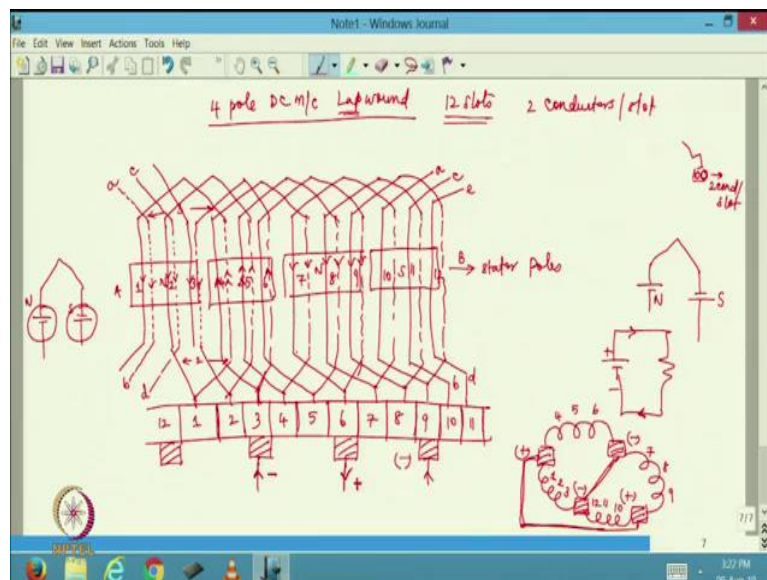 Note1 - Windows Journal
File Edit View Insert Actions Tools Help
4 pole DC m/c Lapwound 12 slots 2 conductors/slot
2 cond/
slot
a c a c e
A 1 N 2 3 4 5 6 7 N 8 9 10 S 11 12 B → stator poles
N S
N S
b d b d
12 1 2 3 4 5 6 7 8 9 10 11
- + (-)
+ -
4 5 6
(+) (-) 7
1 2 3 8
(-) 12 11 10 (+) 9
NPTEL
7/7
7
3:22 PM